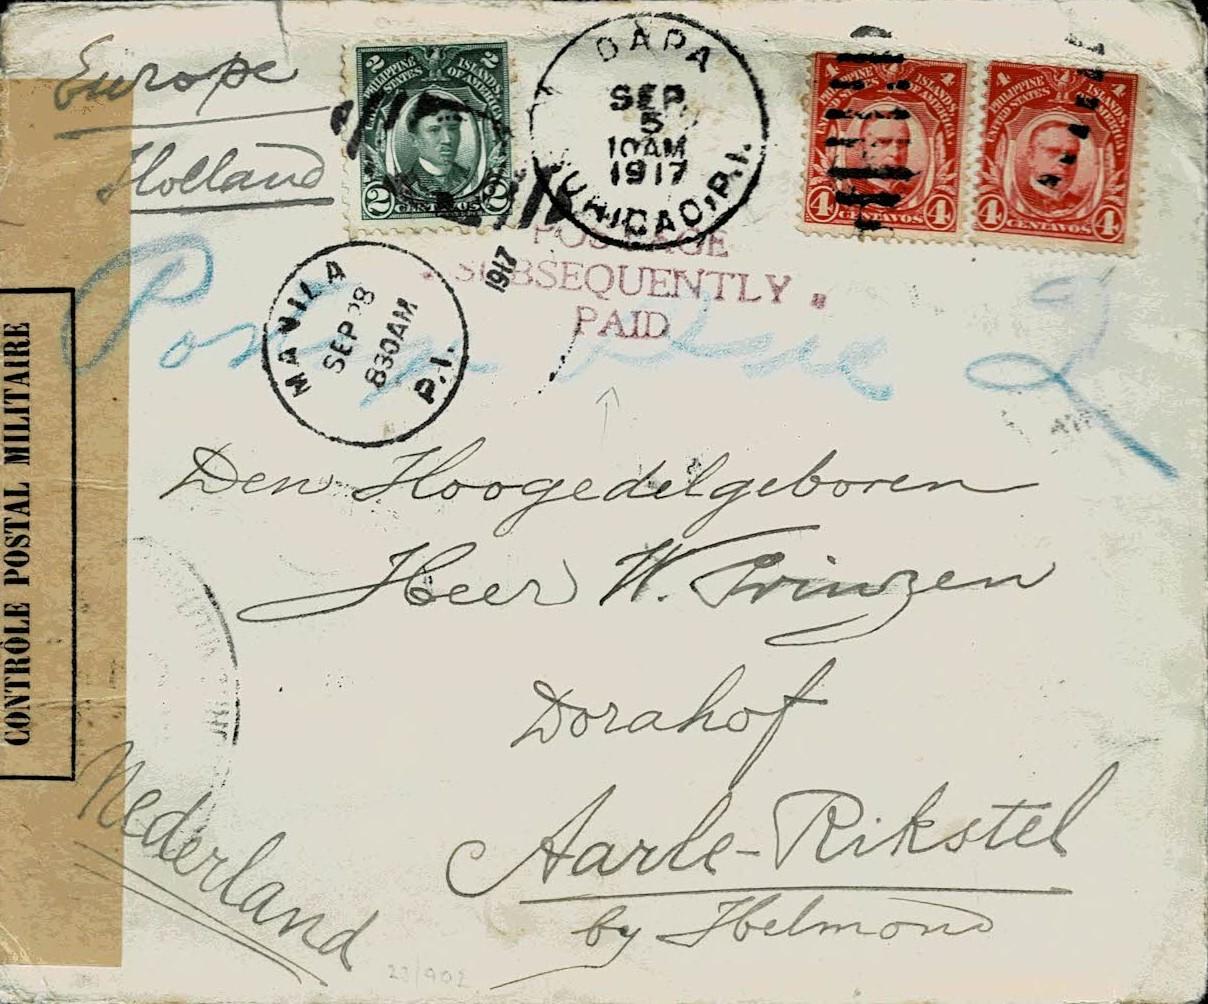 Europe
Holland
2 2
PHILIPPINE ISLANDS
UNITED STATES OF AMERICA
2 CENTAVOS 2
DAPA
SEP
5
10AM
1917
P.I.
4 4
PHILIPPINE ISLANDS
UNITED STATES OF AMERICA
4 CENTAVOS 4
4 4
PHILIPPINE ISLANDS
UNITED STATES OF AMERICA
4 CENTAVOS 4
POSTAGE
SUBSEQUENTLY
PAID
MANILA
SEP 28
830AM
P.I.
1917
Postage due 2
CONTRÔLE POSTAL MILITAIRE
Den Hoogedelgeboren
Heer W. Prinzen
Dorahof
Aarle-Rikstel
by Helmond
Nederland
23/902